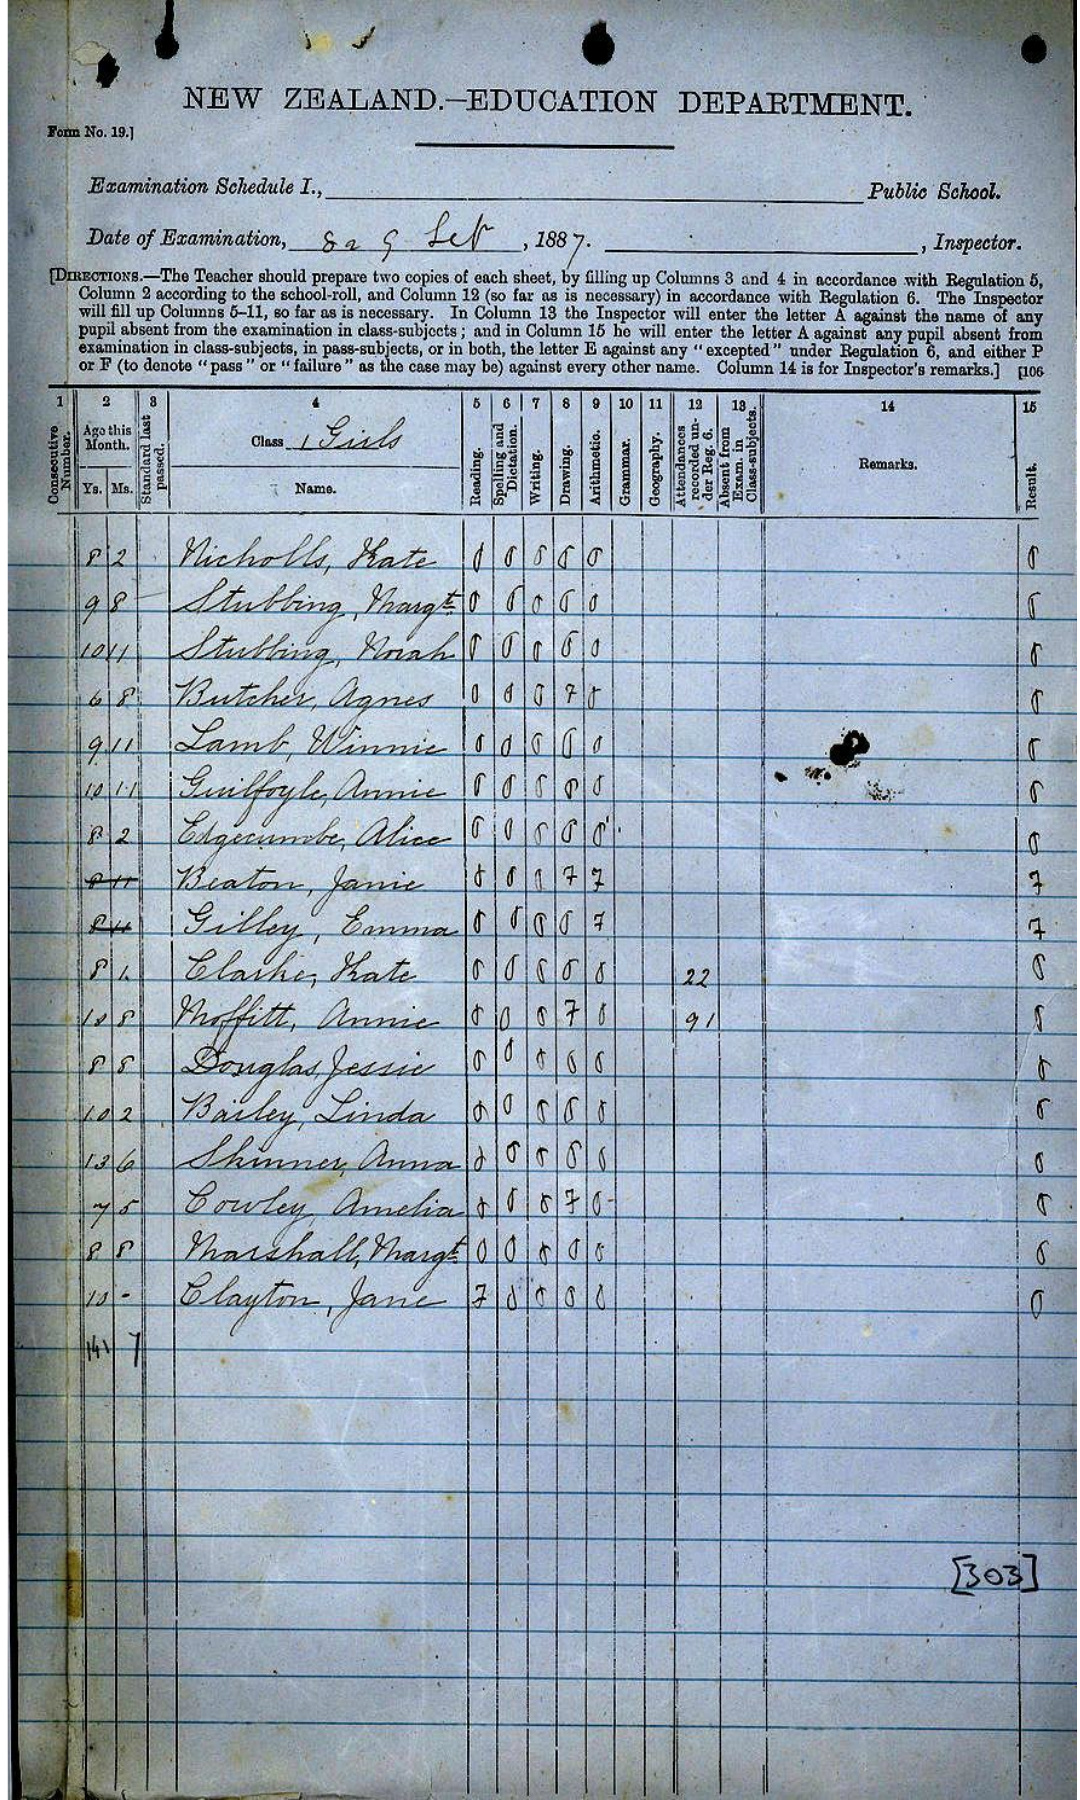 NEW ZEALAND.—EDUCATION DEPARTMENT.
Form No. 19.]
Examination Schedule I., Public School.
Date of Examination, 8 a 9 Sep , 1887. , Inspector.
[DIRECTIONS.—The Teacher should prepare two copies of each sheet, by filling up Columns 3 and 4 in accordance with Regulation 5,
Column 2 according to the school-roll, and Column 12 (so far as is necessary) in accordance with Regulation 6. The Inspector
will fill up Columns 5–11, so far as is necessary. In Column 13 the Inspector will enter the letter A against the name of any
pupil absent from the examination in class-subjects; and in Column 15 he will enter the letter A against any pupil absent from
examination in class-subjects, in pass-subjects, or in both, the letter E against any “excepted” under Regulation 6, and either P
or F (to denote “pass” or “failure” as the case may be) against every other name. Column 14 is for Inspector's remarks.] [106
1 2 3 4 5 6 7 8 9 10 11 12 13 14 15
Consecutive Number.
Age this Month.
Ys. Ms.
Standard last passed.
Class 1 Girls
Name.
Reading.
Spelling and Dictation.
Writing.
Drawing.
Arithmetic.
Grammar.
Geography.
Attendances recorded under Reg. 6.
Absent from Exam. in Class-subjects.
Remarks.
Result.
8 2 Nicholls, Kate
9 8 Stubbing, Margt.
10 11 Stubbing, Norah
6 8 Butcher, Agnes 7
9 11 Lamb, Winnie
10 11 Guilfoyle, Annie
8 2 Edgecumbe, Alice
8 11 Beaton, Janie 7 7 7
8 11 Gilley, Emma 7 7
8 1 Clarke, Kate 22
10 8 Moffitt, Annie 7 91
8 8 Douglas, Jessie
10 2 Bailey, Linda
13 6 Skinner, Anna
7 5 Cowley, Amelia 7
8 8 Marshall, Margt.
10 - Clayton, Jane 7
141 7
[303]